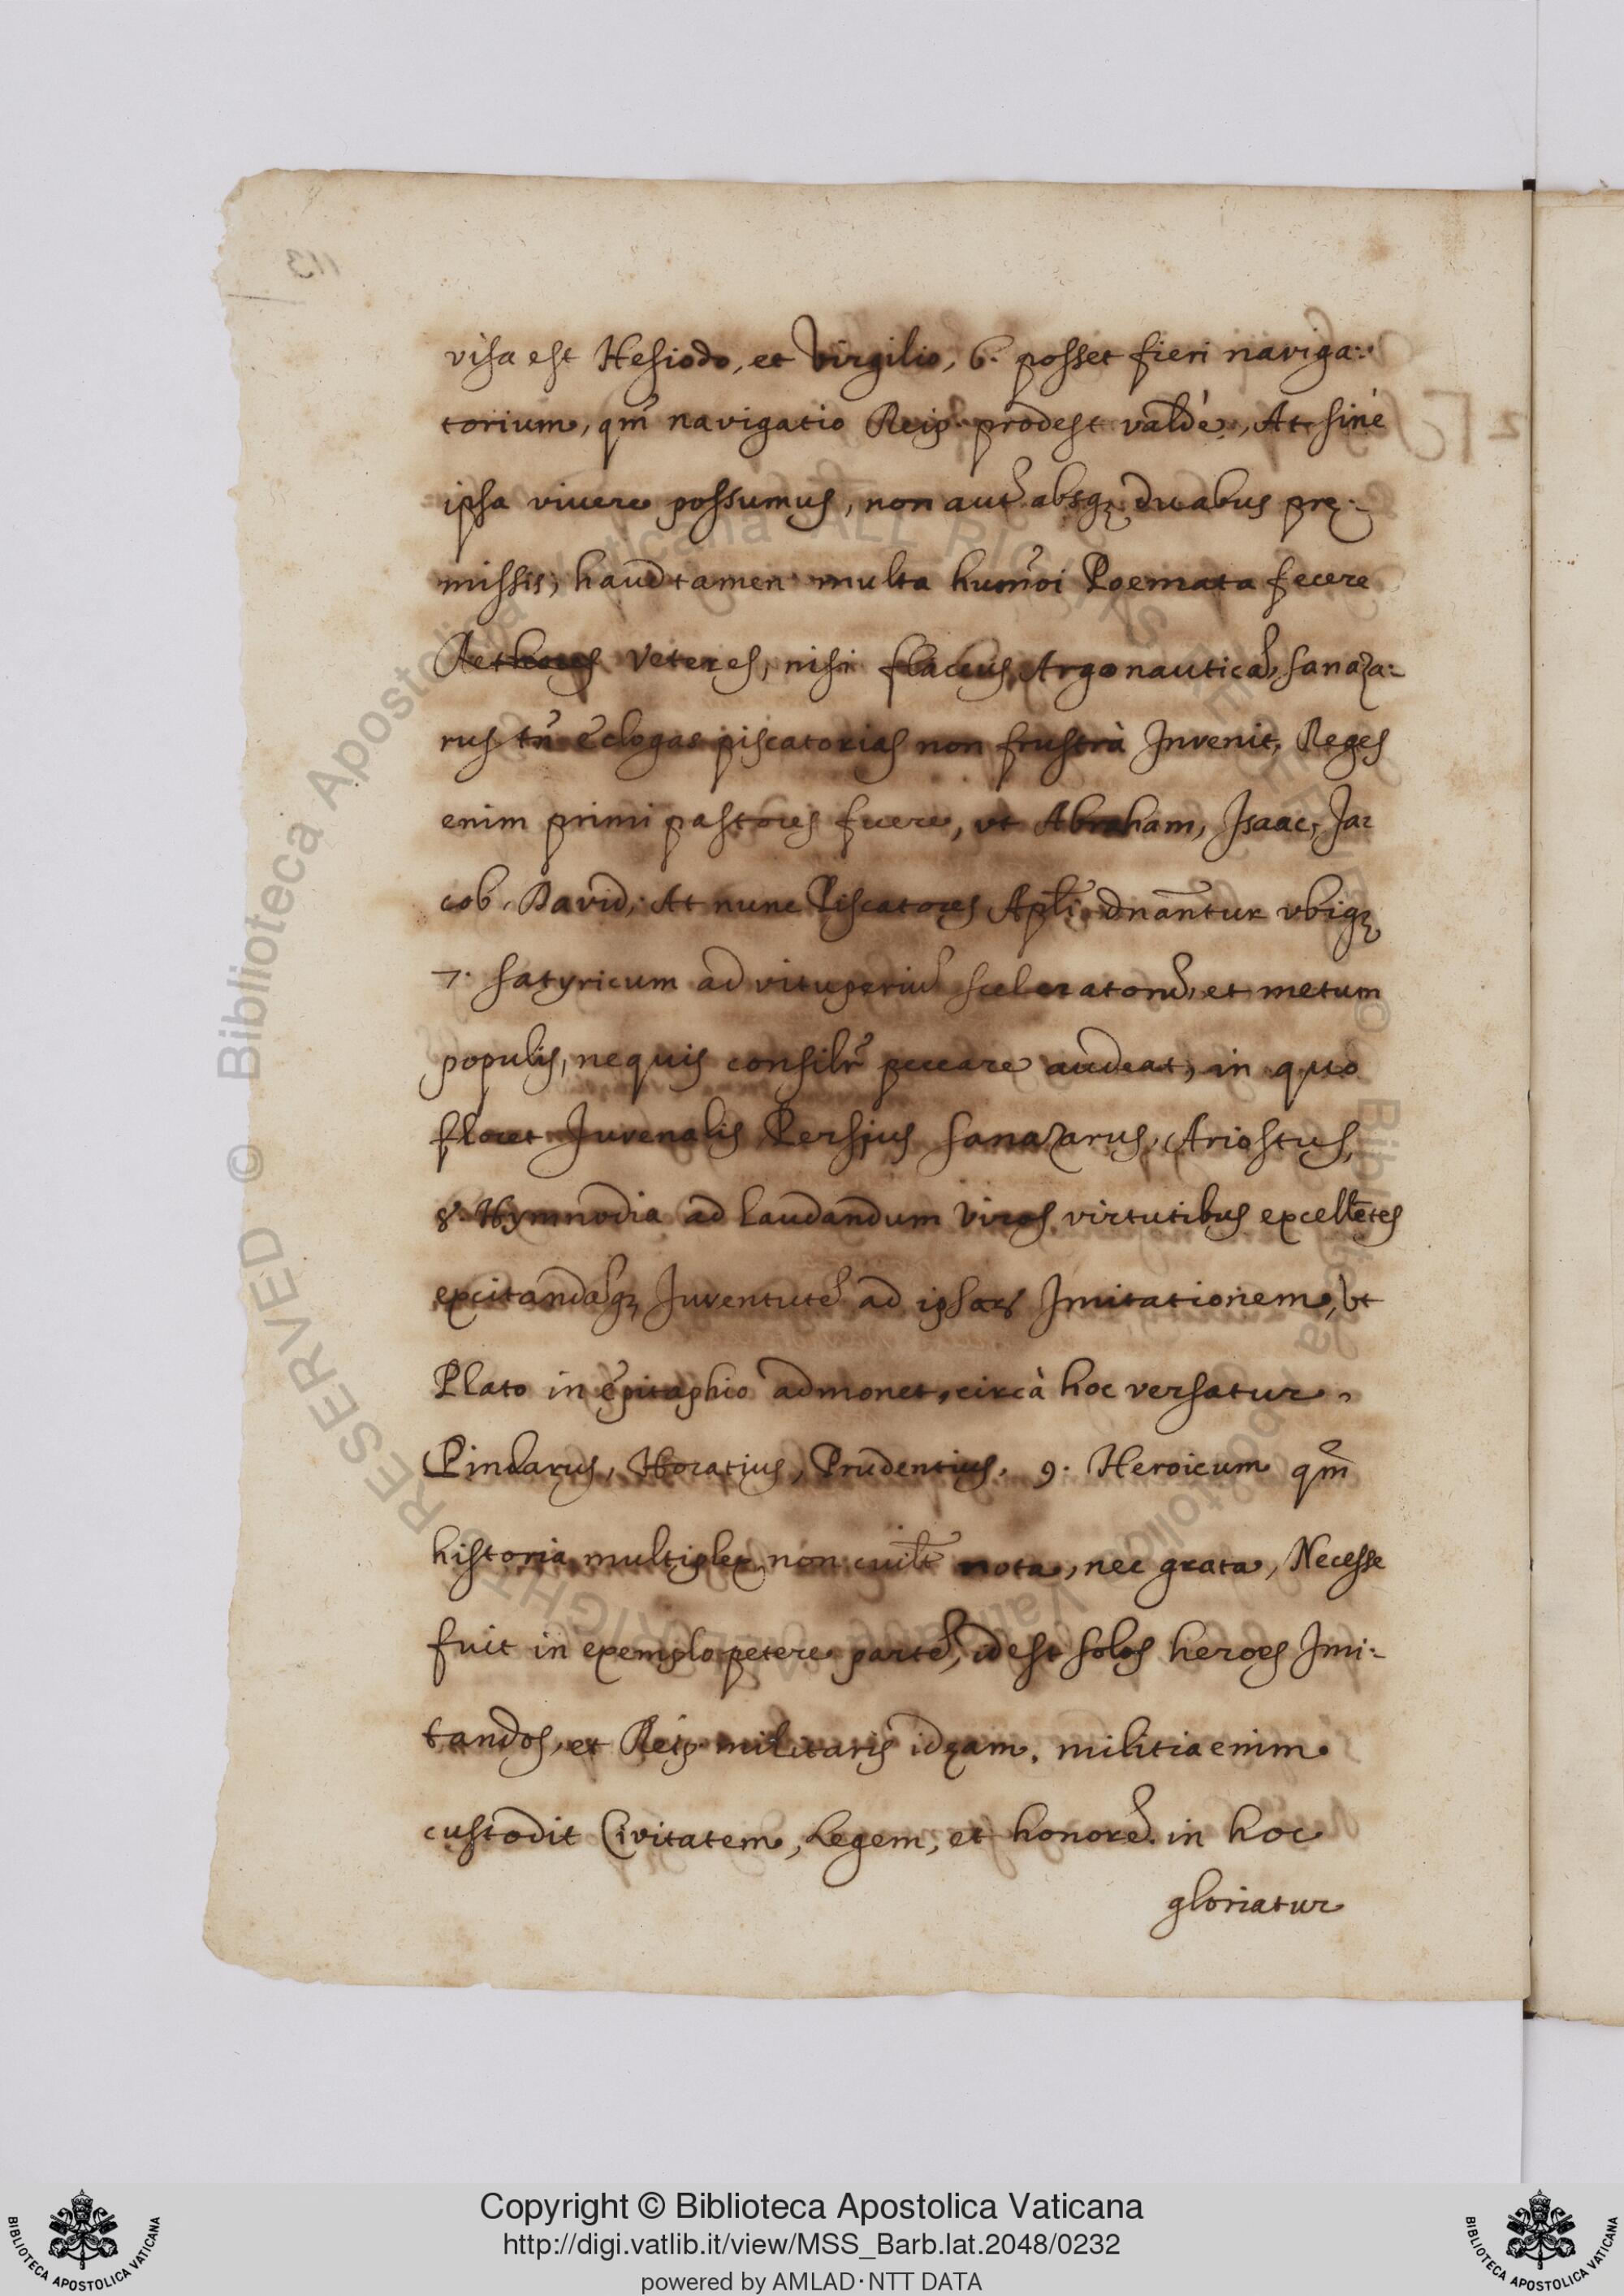 visa est Hesiodo, et Virgilio, 6. posset fieri naviga:
torium, qm̃ navigatio Reip. prodest valdè, At sinè
ipsa vivere possumus, non aut̃ absq; duabus prę:
missis; haud tamen multa humõi Poemata fecere
Aethores Veteres, nisi flaccus Argonauticã, sanaza:
rus tñ eclogas piscatorias non frustrà Invenit, Reges
enim primi pastores fuere, ut Abraham, Isaac, Ja:
cob, David; At nunc Piscatores Apl̃i dnãntur ubiq;
7. satyricum ad vituperiũ sceleratorũ, et metum
populis, nequis consilr̃ peccare audeat, in quo
floret Juvenalis Persius sanazarus, Ariostus,
8. Hymnodia ad laudandum viros virtutibus excellẽtes
excitandãq; Juventutẽ ad ipsar Imitationem, ut
Plato in epitaphio admonet, circà hoc versatur,
Pindarus, Horatius, Prudentius. 9. Heroicum qm̃
historia multiplex non cuilt̃ nota, nec grata, Necesse
fuit in exemplo petere partẽ, idest solos heroes Imi:
tandos, et Reip. militaris idęam. militia enim
custodit Civitatem, Legem, et honorẽ. in hoc
gloriatur
113
© Biblioteca Apostolica Vaticana ALL RIGHTS RESERVED
© Biblioteca Apostolica Vaticana ALL RIGHTS RESERVED
Copyright © Biblioteca Apostolica Vaticana
http://digi.vatlib.it/view/MSS_Barb.lat.2048/0232
powered by AMLAD·NTT DATA
BIBLIOTECA APOSTOLICA VATICANA
BIBLIOTECA APOSTOLICA VATICANA